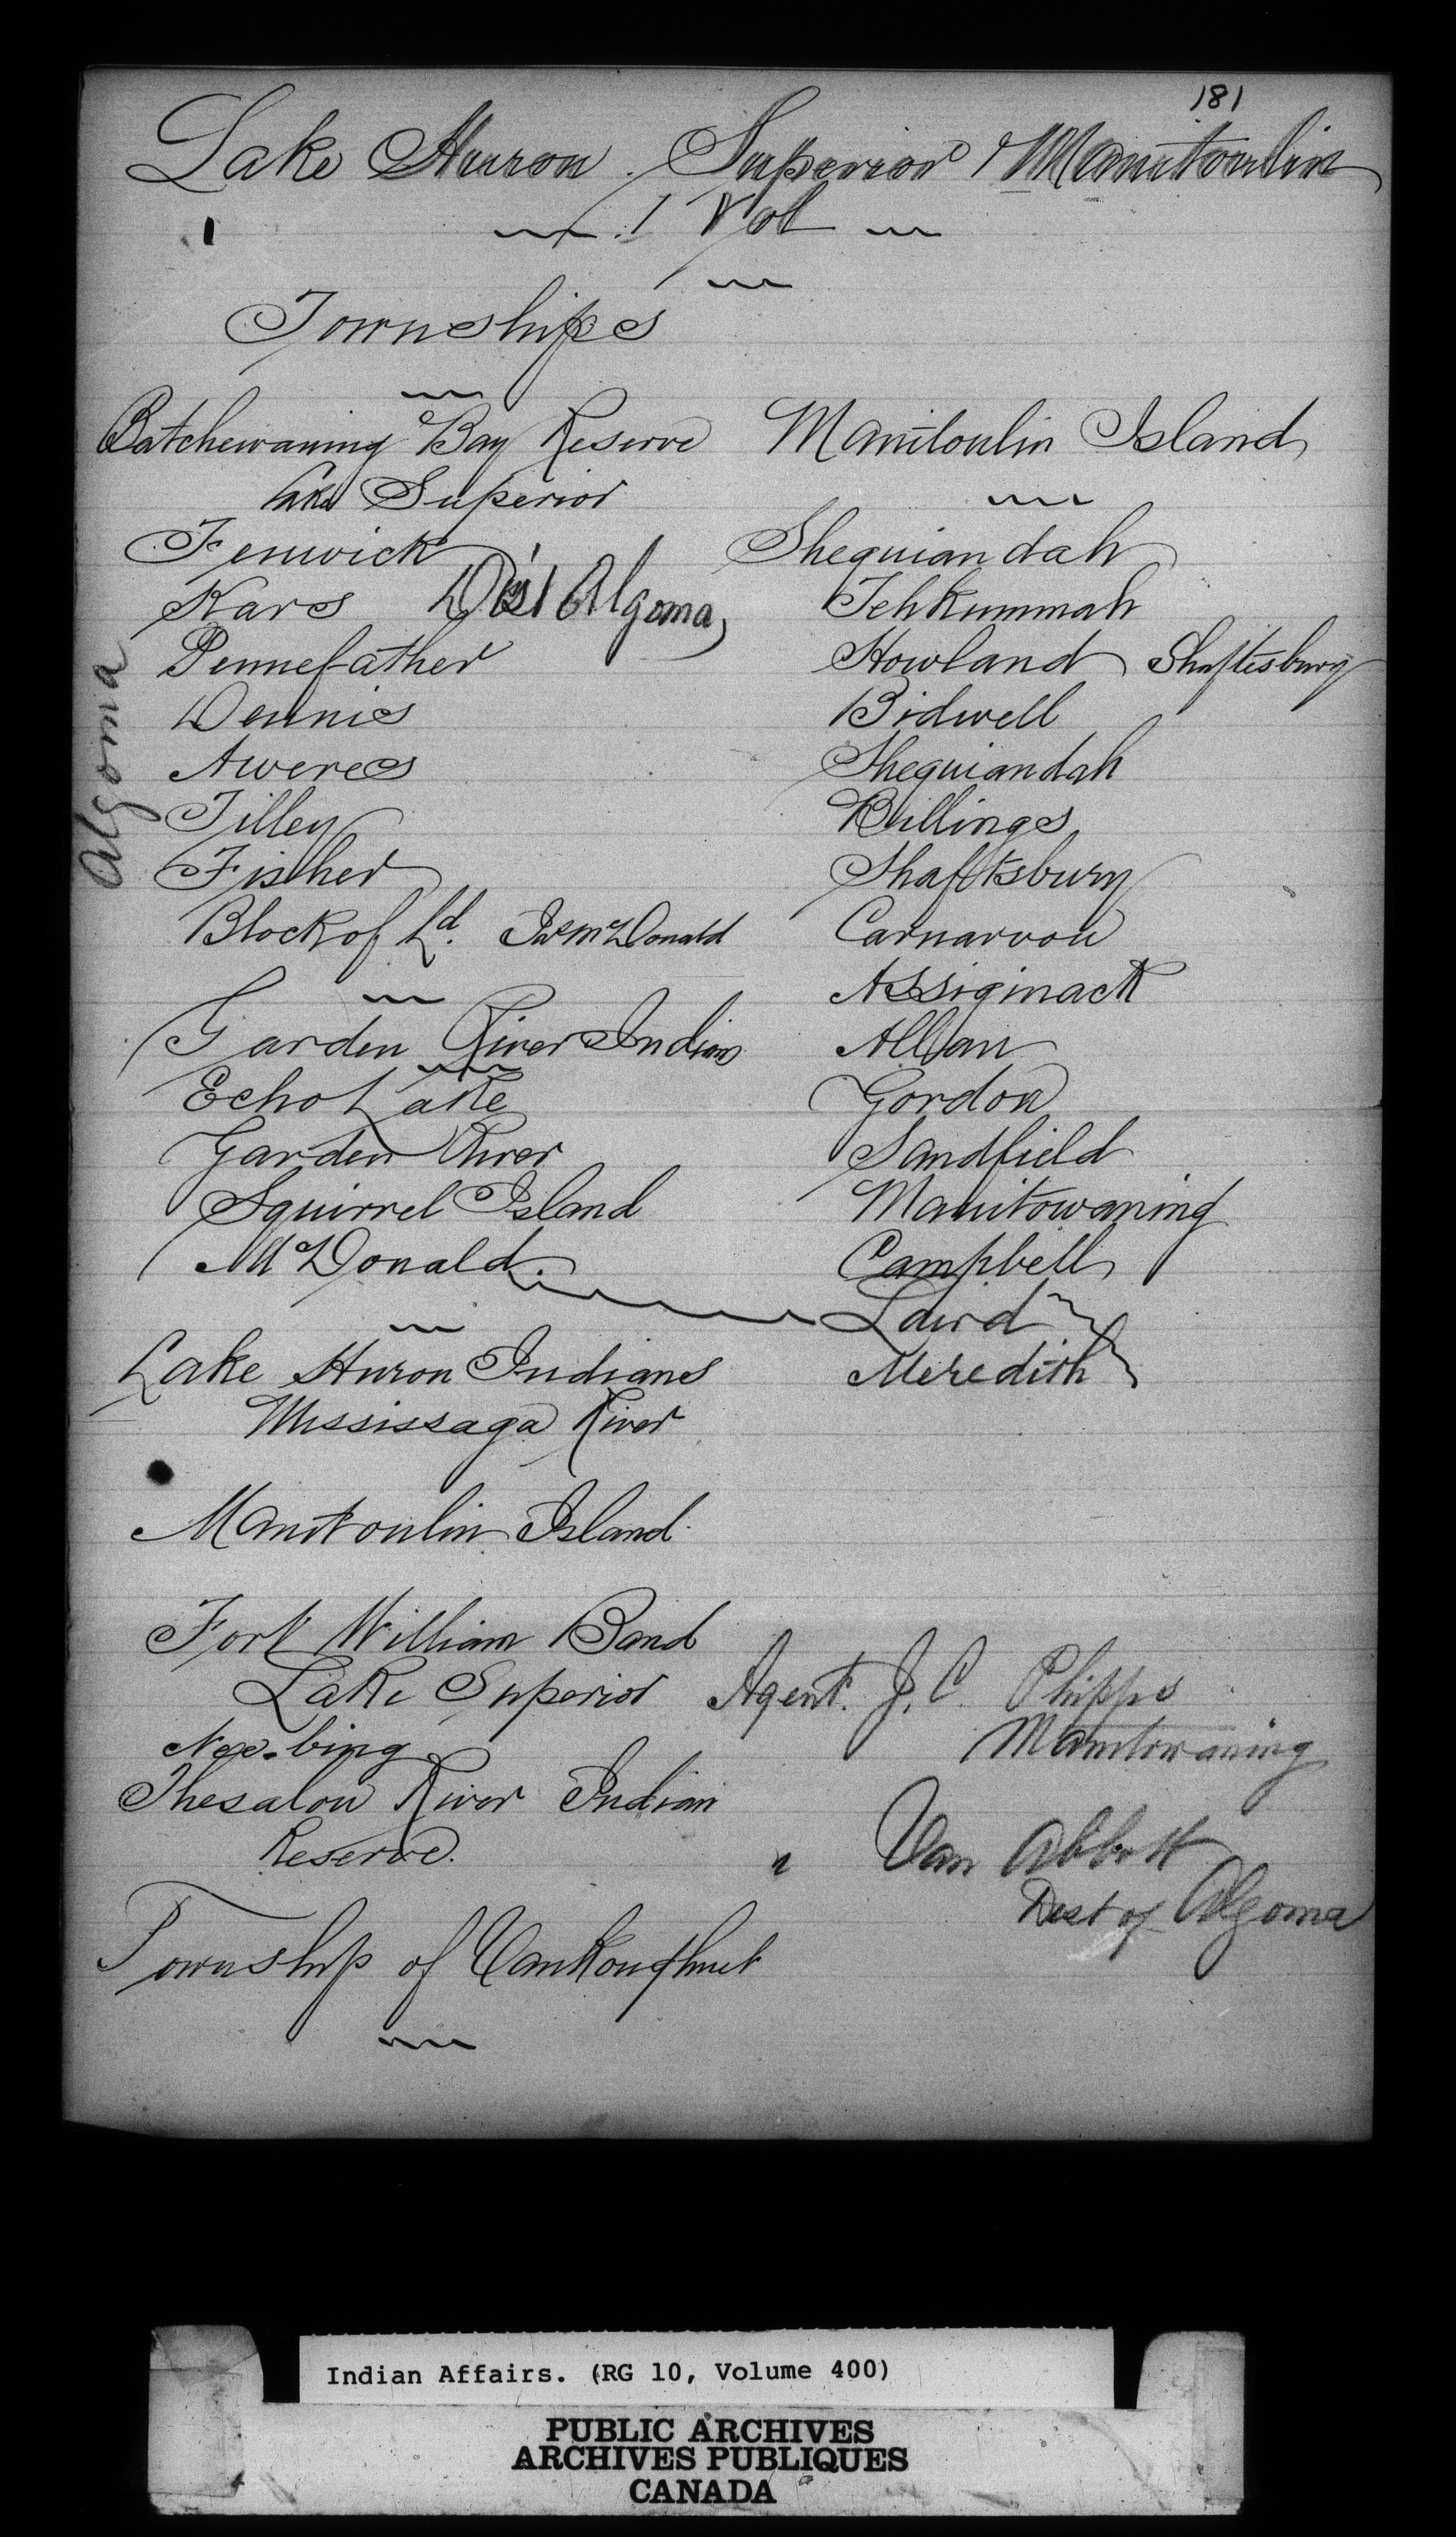 181
Lake Huron. Superior & Manitoulin
1 Vol
Townships
Batchewaning Bay Reserve
Lake Superior
Fenwick
Kars Dist Algoma
Pennefather
Dennis
Aweres
Tilley
Fisher
Block of Ld. Jas McDonald
Algoma
Garden River Indians
Echo Lake
Garden River
Squirrel Island
McDonald.
Lake Huron Indians
Mississaga River
Manitoulin Island
Fort William Band
Lake Superior
Nee-bing
Thesalon River Indian
Reserve.
Township of VanKoughnet
Manitoulin Island
Sheguiandah
Tehkummah
Howland Shaftesbury
Bidwell
Sheguiandah
Billings
Shaftsbury
Carnarvon
Assiginack
Allan
Gordon
Sandfield
Manitowaning
Campbell
Laird
Meredith
Agent. J. C. Phipps
Manitowaning
" Van Abbott
Dist of Algoma
Indian Affairs. (RG 10, Volume 400)
PUBLIC ARCHIVES
ARCHIVES PUBLIQUES
CANADA